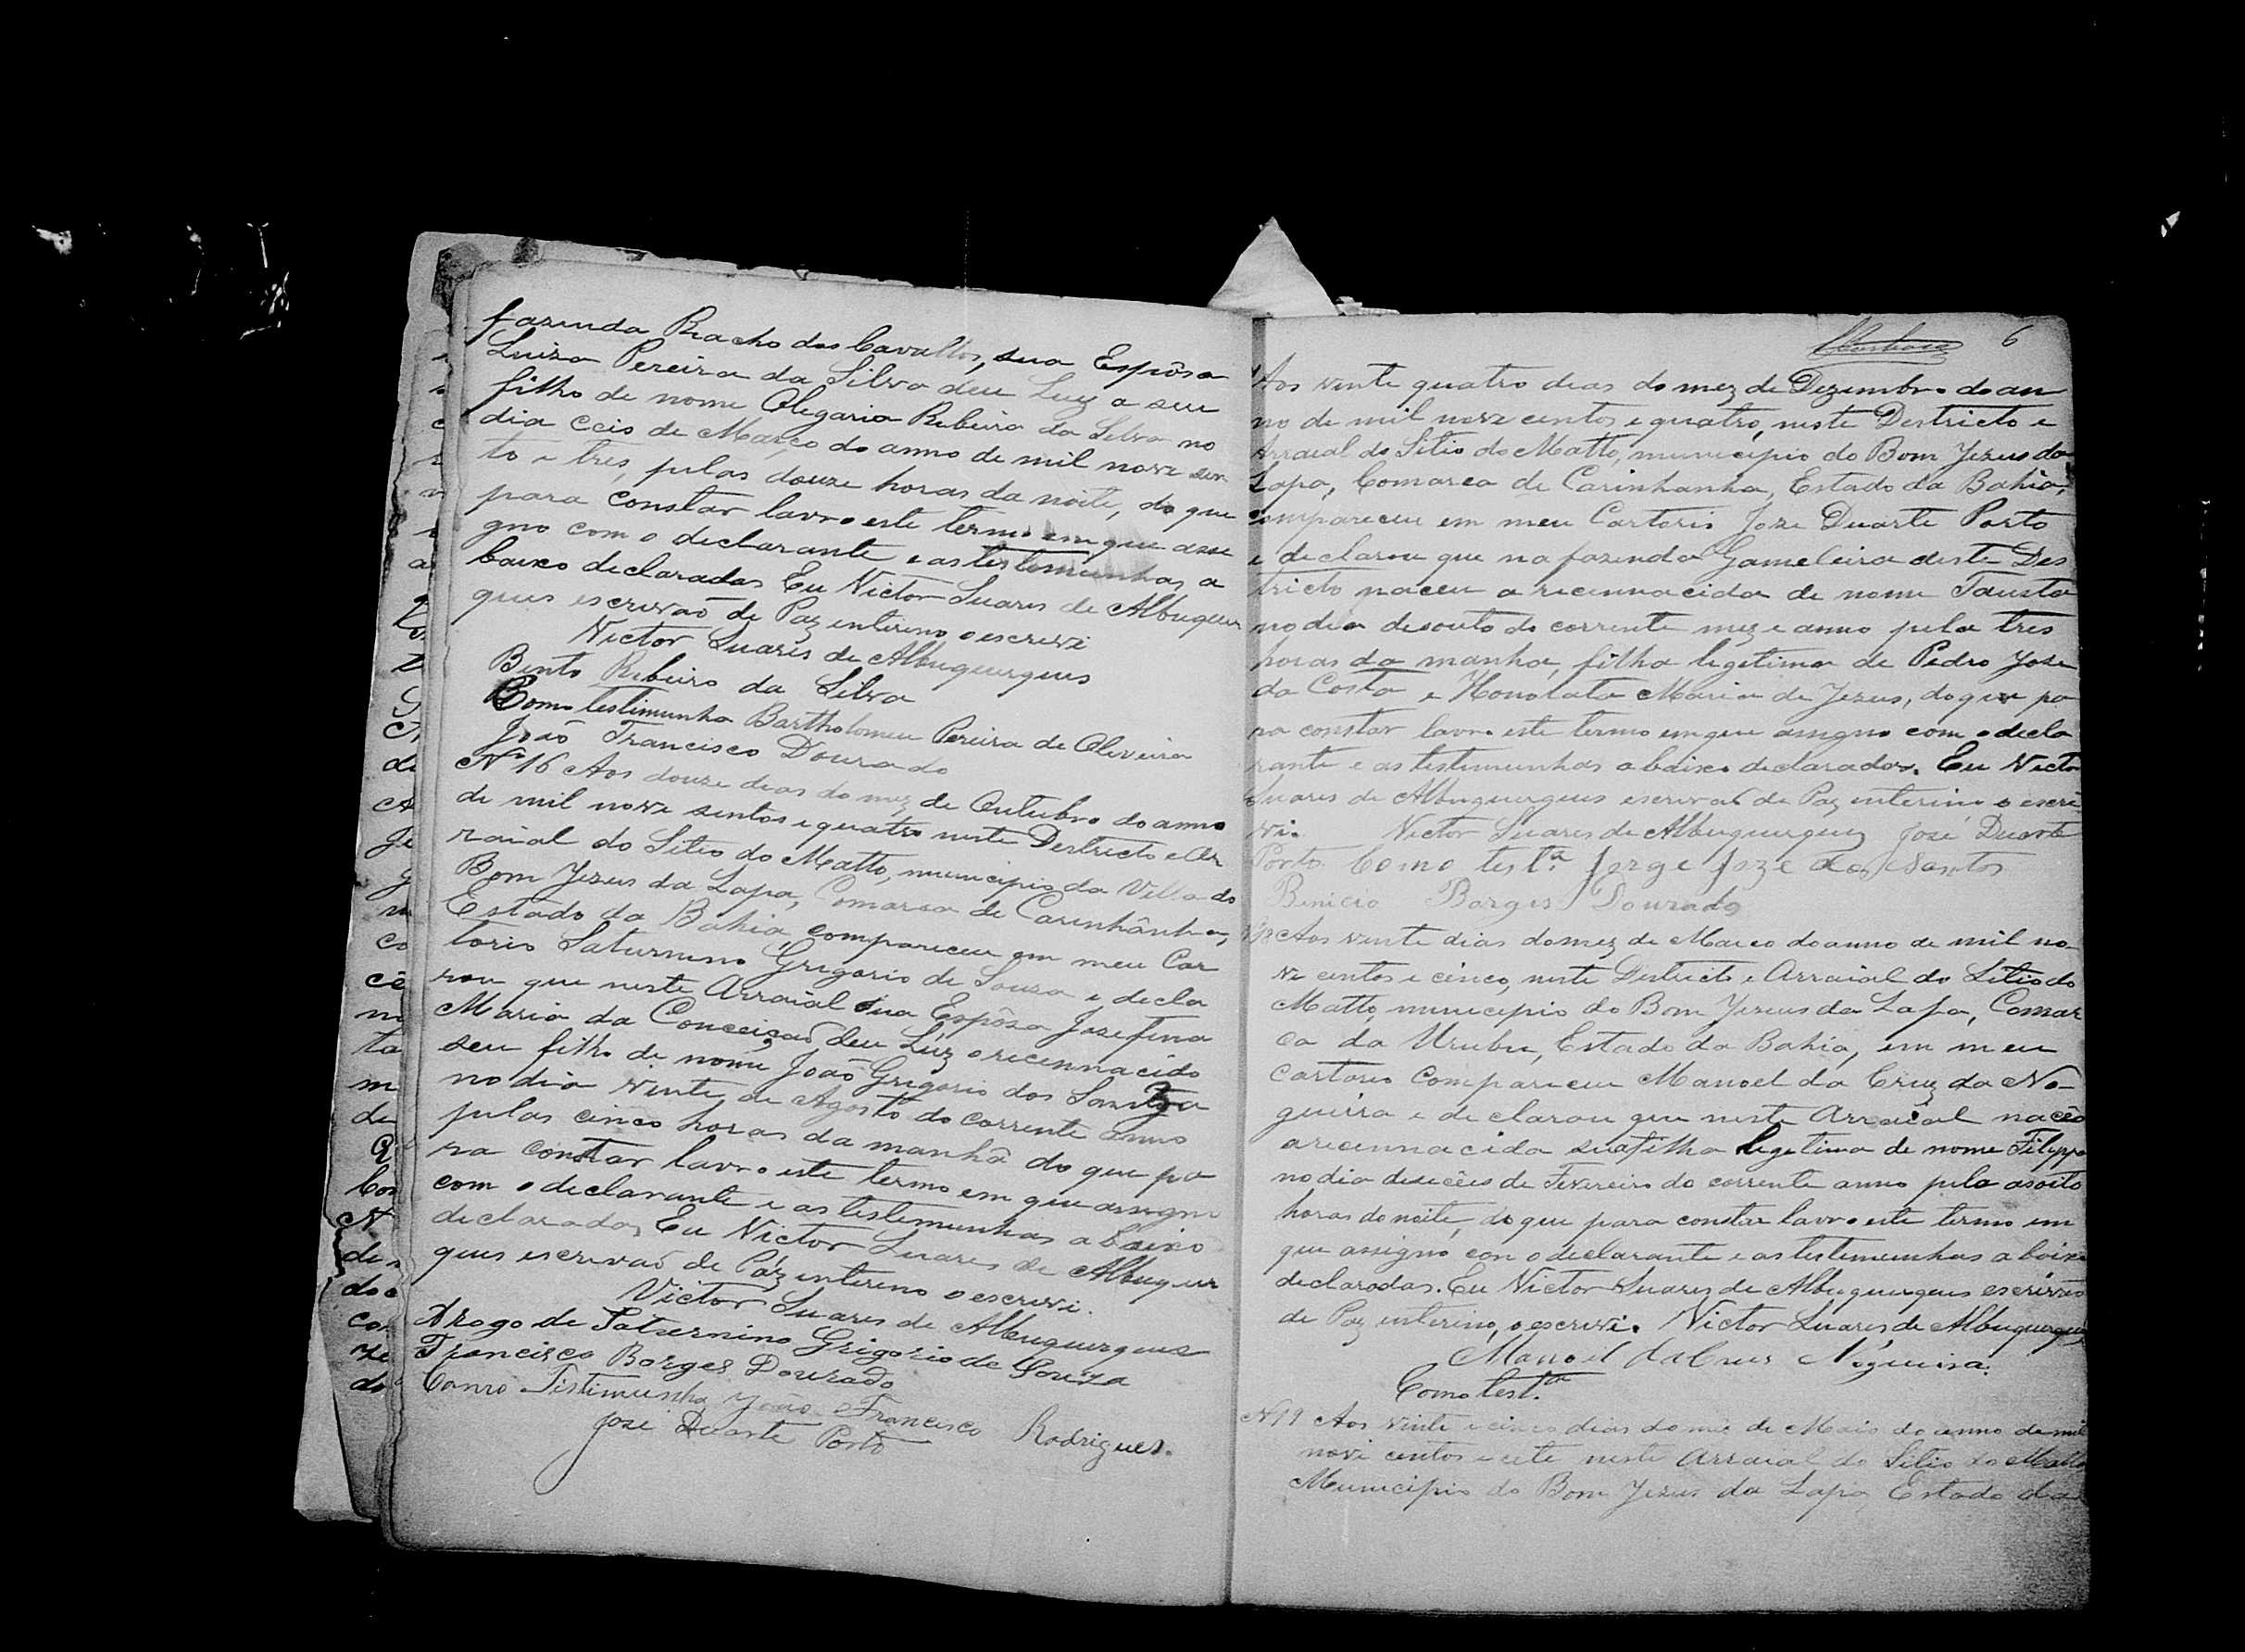 fazenda Riacho dos Cavallos, sua Espôsa
Luiza Pereira da Silva deu Luz a seu
filho de nome Olegario Ribeiro da Silva no
dia Ceis de Março do anno de mil nove sen
to e tres, pelas douze horas da noite, do que
para constar lavro este termo em que assi
gno com o declarante e as testemunhas a
baixo declaradas Eu Victor Suares de Albuquer
ques escrivaõ de Paz enterino o escrevi
Victor Suares de Albuquerques
Bento Ribeiro da Silva
Como testimunha Bartholomeu Pereira de Oliveira
João Francisco Dourado
Nº 16 Aos douze deas do mez de Outubro do anno
de mil nove sentos e quatro neste Destricto e Ar
raial do Sitio do Matto, municipio da Villa do
Bom Jezus da Lapa, Comarca de Carinhânha,
Estado da Bahia, compareceu em meu Car
torio Saturnino Grigorio de Souza e decla
rou que neste Arraial sua Espôsa Jozefina
Maria da Conceiçaõ deu Lúz o recennacido
seu filho de nome João Grigorio dos
no dia vinte de Agosto do corrente anno
pelas cinco horas da manhã do que pa
ra constar lavro este termo em que assigno
com o declarante e as testemunhas abaixo
declaradas, Eu Victor Suares de Albuquer
ques escrivaõ de Páz enterino o escrevi.
Victor Suares de Albuquerques
Arogo de Saturnino Grigorio de Souza
Francisco Borges Dourado
Como Tistimunha João Francisco Rodrigues.
José Duarte Porto
6
Aos vente quatro deas do mez de Dezembro do an
no de mil nove centos e quatro, neste Destricto e
Arraial do Sitio do Matto, municipio do Bom Jezus da
Lapa, Comarca de Carinhanha, Estado da Bahia,
compareceu em meu Cartorio Joze Duarte Porto
e declarou que na fazenda Gameleira deste Des
tricto naceu a recennacida de nome Fausta
no dia desouto do corrente mez e anno pela tres
horas da manha, filha legetima de Pedro Joze
da Costa e Honolata Maria de Jezus, do que pa
ra constar lavro este termo emque assigno com o decla
rante e as testimunhas abaixo declaradas. Eu Victor
Suares de Albuquerques escrivaõ de Paz enterino o escre
vi. Victor Suares de Albuquerques José Duarte
Porto Como test.ª Jorge Joze dos Santos
Binicio Borges Dourado
Aos vente dias do mez de Março do anno de mil no-
ve centos e cinco, neste Destricto e Arraial do Sitio do
Matto municipio do Bom Jezus da Lapa, Comar
ca da Urubu, Estado da Bahia, em meu
cartorio Compareceu Manoel da Cruz da No-
gueira e declarou que neste Arraial naceo
a recennacida sua filha legetima de nome Filippa
no dia deseceis de Fevereiro do corrente anno pela as oito
horas do noite, do que para constar lavro este termo em
que assigno, con o declarante e as testimunhas abaixo
declarodas. Eu Victor Suares de Albuquerques escrivaõ
de Paz enterino, o escrevi. Victor Suares de Albuquerques
Manoel da Cruz Nogueira.
Como test.ª
Nº 19 Aos vinte e cinco dias do mez de Maio do anno de mil
nove centos e cete neste Arraial do Sitio do Matto
Municipio do Bom Jezus da Lapa Estado da